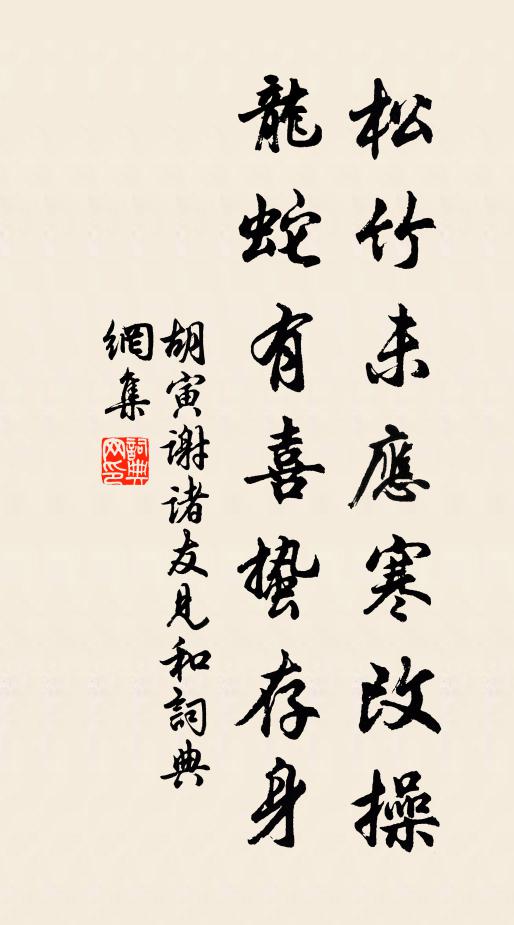 松竹未應寒改操
龍蛇有喜蟄存身
胡寅謝诸友見和詞典
網集
詞典网印